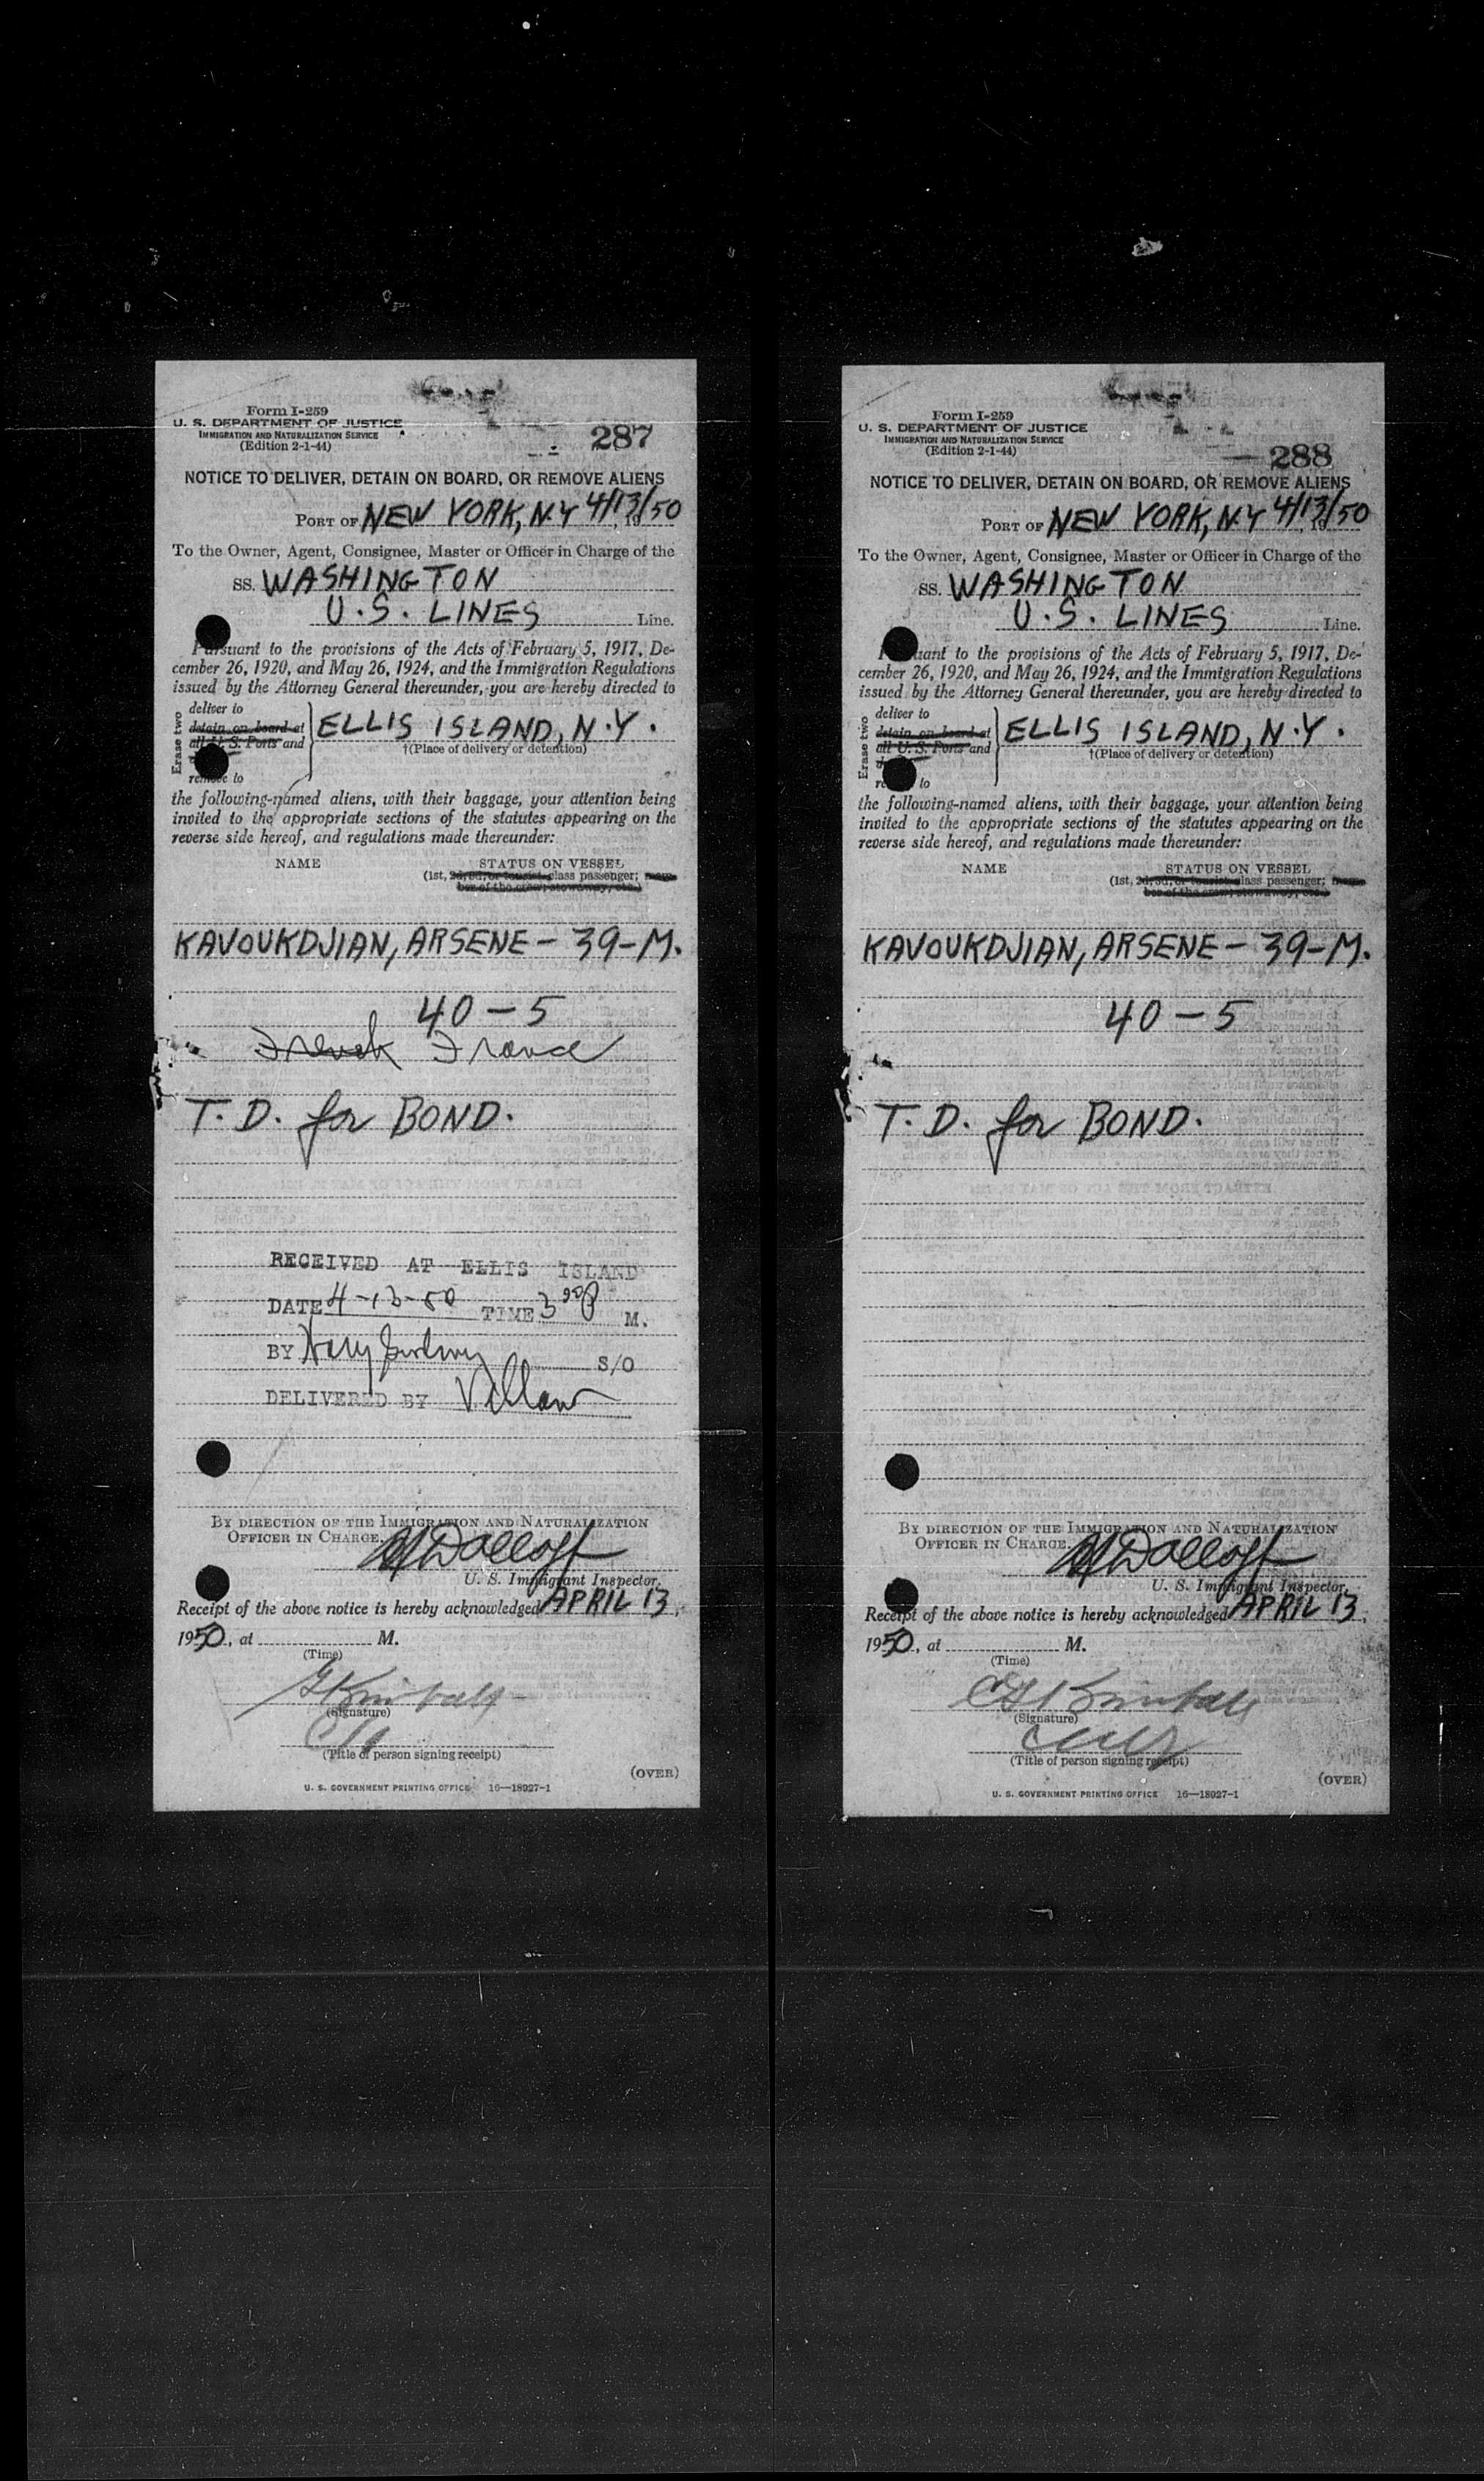 Form I-259
U. S. DEPARTMENT OF JUSTICE
IMMIGRATION AND NATURALIZATION SERVICE
(Edition 2-1-44)
287
NOTICE TO DELIVER, DETAIN ON BOARD, OR REMOVE ALIENS
PORT OF NEW YORK, N.Y 4/13/50
To the Owner, Agent, Consignee, Master or Officer in Charge of the
SS. WASHINGTON
U.S. LINES Line.
Pursuant to the provisions of the Acts of February 5, 1917, De-
cember 26, 1920, and May 26, 1924, and the Immigration Regulations
issued by the Attorney General thereunder, you are hereby directed to
Erase two
deliver to
detain on board at
all U. S. Ports and
remove to
ELLIS ISLAND, N.Y.
†(Place of delivery or detention)
the following-named aliens, with their baggage, your attention being
invited to the appropriate sections of the statutes appearing on the
reverse side hereof, and regulations made thereunder:
NAME STATUS ON VESSEL
(1st, 2d, 3d, or tourist class passenger; mem-
ber of the crew; stowaway, etc.)
KAVOUKDJIAN, ARSENE - 39-M.
40-5
French France
T. D. for BOND.
RECEIVED AT ELLIS ISLAND
DATE 4-13-50 TIME 3 00 P M.
BY Harry S/O
DELIVERED BY
BY DIRECTION OF THE IMMIGRATION AND NATURALIZATION
OFFICER IN CHARGE.
U. S. Immigrant Inspector.
Receipt of the above notice is hereby acknowledged APRIL 13,
1950, at M.
(Time)
(Signature)
(Title of person signing receipt)
(OVER)
U. S. GOVERNMENT PRINTING OFFICE 16—18027-1
Form I-259
U. S. DEPARTMENT OF JUSTICE
IMMIGRATION AND NATURALIZATION SERVICE
(Edition 2-1-44)
288
NOTICE TO DELIVER, DETAIN ON BOARD, OR REMOVE ALIENS
PORT OF NEW YORK, N.Y 4/13/50
To the Owner, Agent, Consignee, Master or Officer in Charge of the
SS. WASHINGTON
U.S. LINES Line.
Pursuant to the provisions of the Acts of February 5, 1917, De-
cember 26, 1920, and May 26, 1924, and the Immigration Regulations
issued by the Attorney General thereunder, you are hereby directed to
Erase two
deliver to
detain on board at
all U. S. Ports and
to
ELLIS ISLAND, N.Y.
†(Place of delivery or detention)
the following-named aliens, with their baggage, your attention being
invited to the appropriate sections of the statutes appearing on the
reverse side hereof, and regulations made thereunder:
NAME STATUS ON VESSEL
(1st, 2d, 3d, or tourist class passenger; mem-
ber of the crew; stowaway, etc.)
KAVOUKDJIAN, ARSENE - 39-M.
40-5
T. D. for BOND.
BY DIRECTION OF THE IMMIGRATION AND NATURALIZATION
OFFICER IN CHARGE.
U. S. Immigrant Inspector.
Receipt of the above notice is hereby acknowledged APRIL 13,
1950, at M.
(Time)
(Signature)
(Title of person signing receipt)
(OVER)
U. S. GOVERNMENT PRINTING OFFICE 16—18027-1